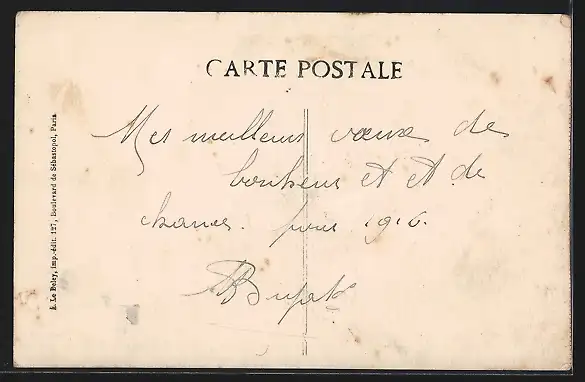 CARTE POSTALE
Mes meilleurs vœux de
bonheur et et de
chance. pour 1916.
A. Le Deley, imp.-édit. 127, Boulevard de Sébastopol, Paris